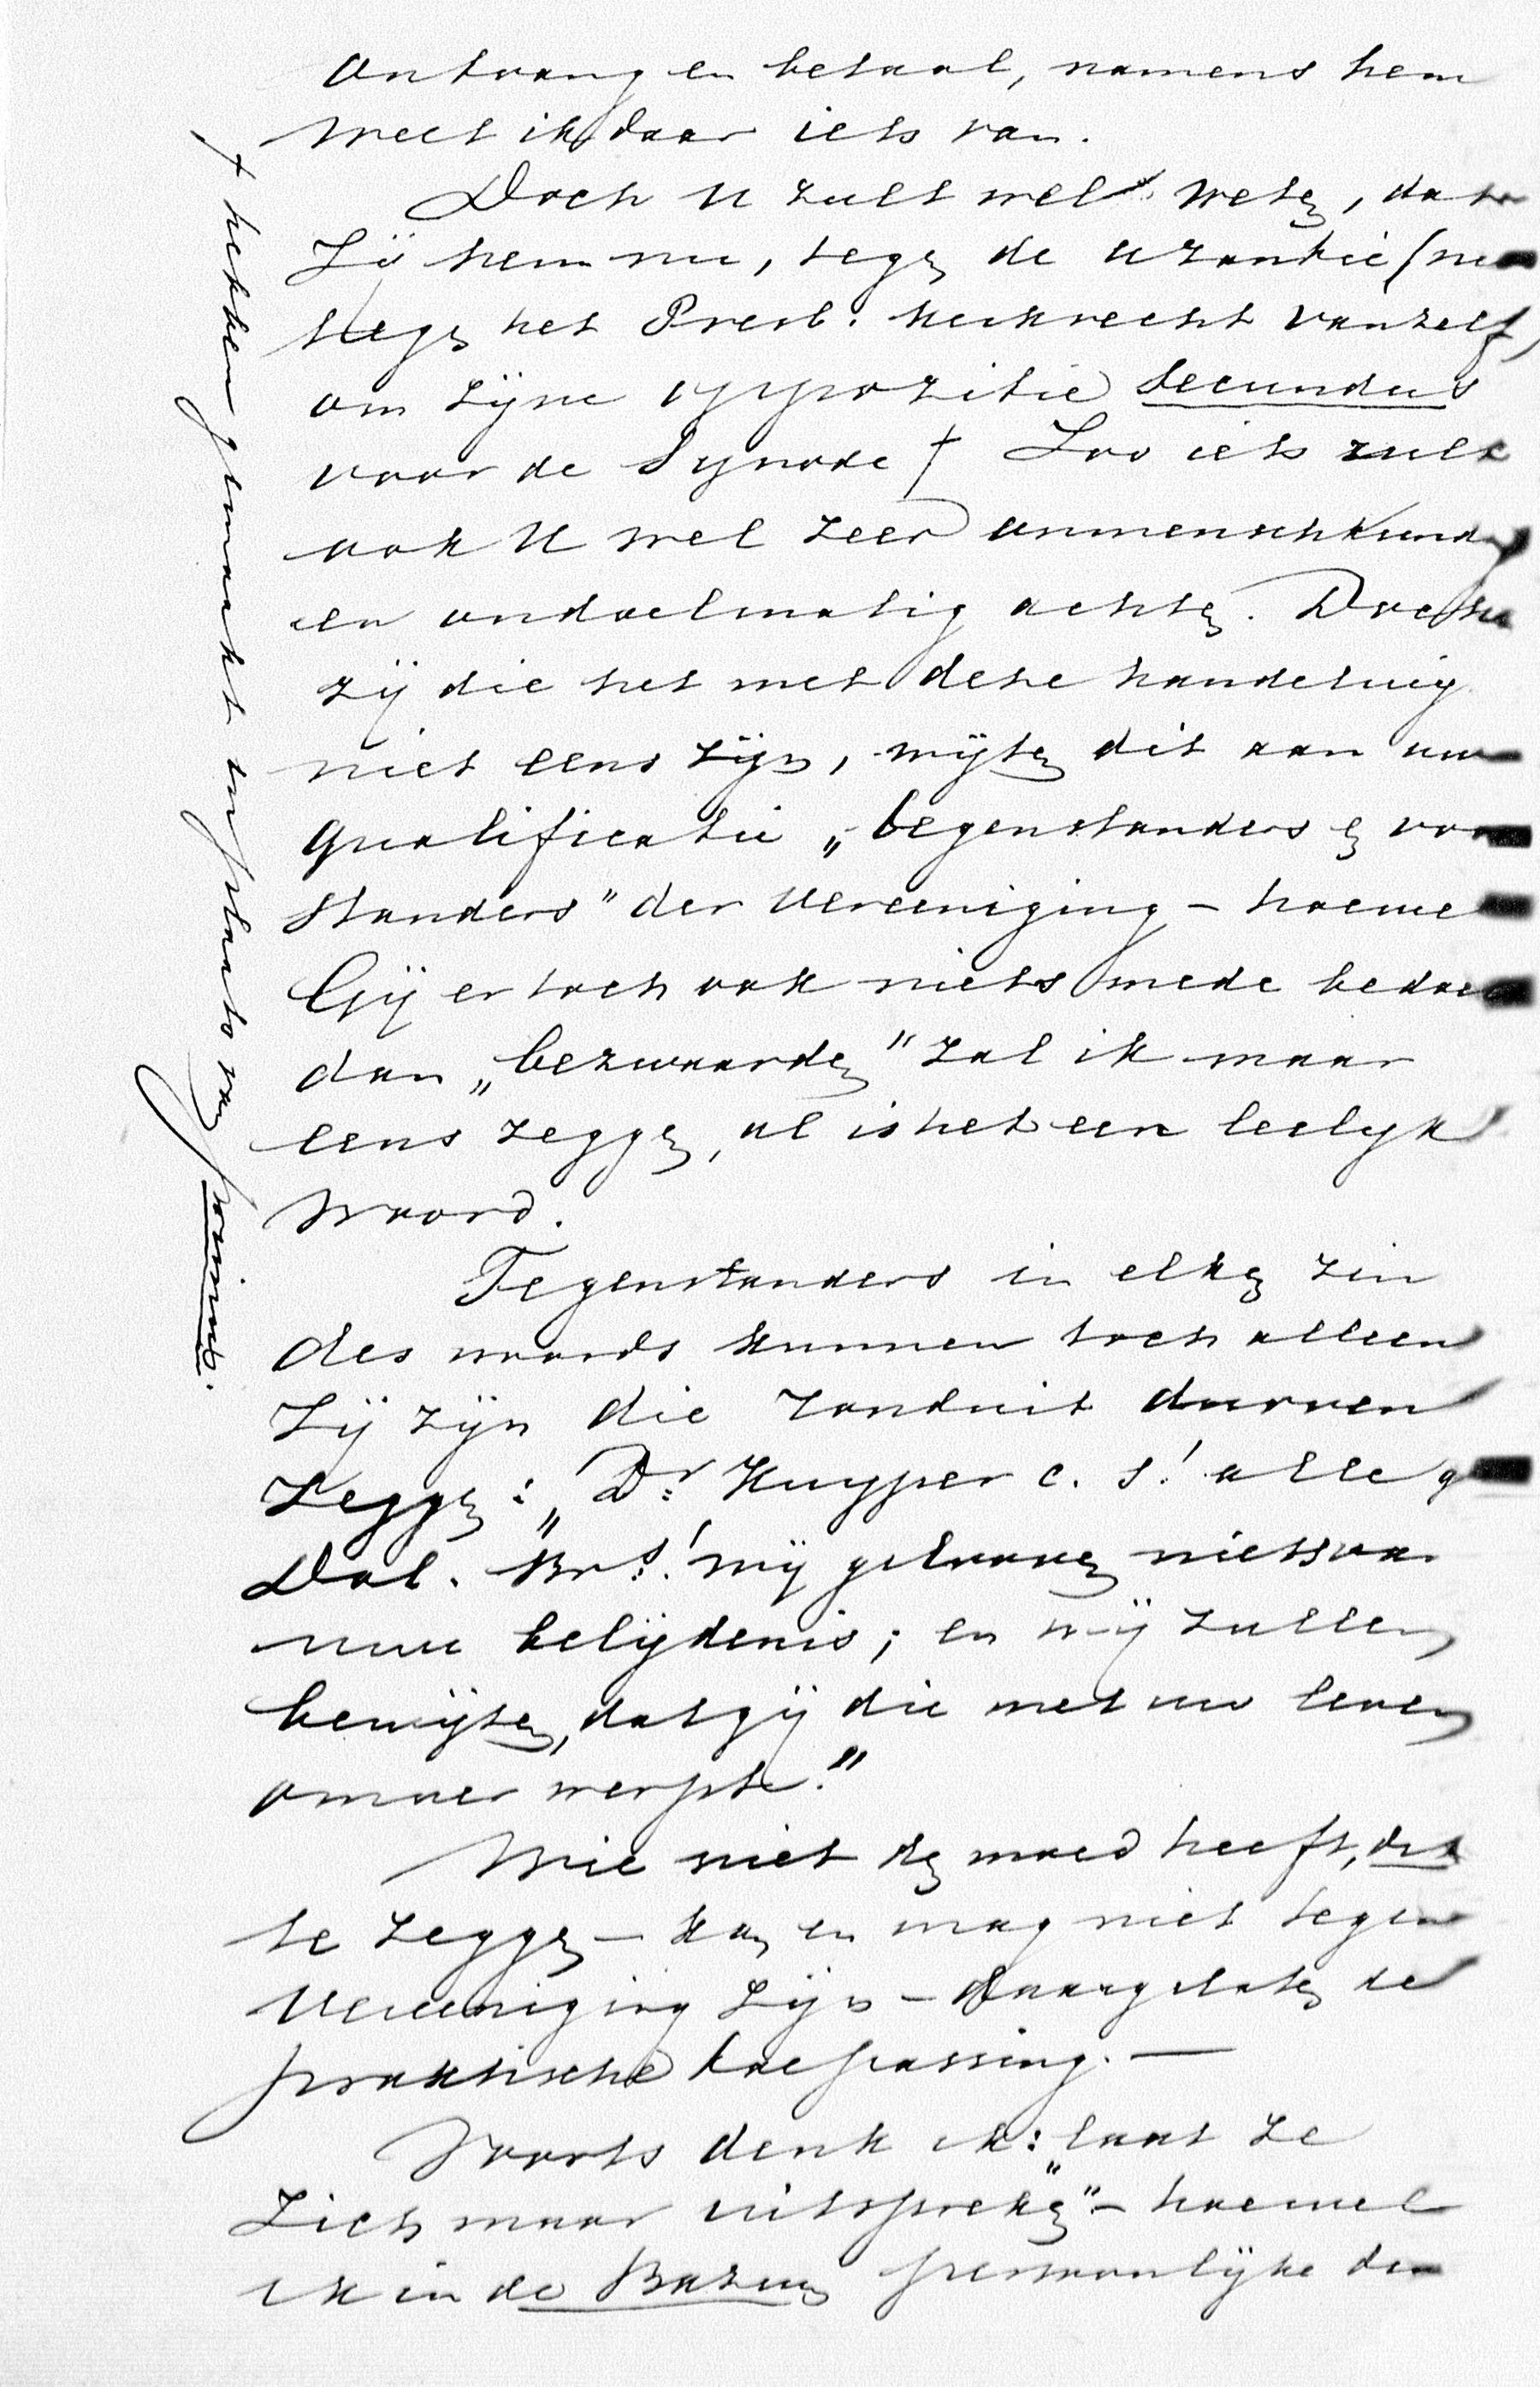 ontvang en betaal, namens hem
weet ik daar iets van.
Doch U zult wel weten, dat
Zij hem nu, tegen de uzantie (neen
tegen het Presb. kerkrecht vanzelf)
om zijne oppozitie secundus
voor de Synode † Zoo iets zult
ook U wel zeer onmenschkundig
en ondoelmatig achten. Doch
zij die het met deze handeling
niet eens zijn, wijten dit aan uw
qualificatie „tegenstanders en voor
standers" der Vereeniging – hoewel
Gij er toch ook niets mede bedoelt
dan „bezwaarden" zal ik maar
eens zeggen, al is het een leelijk
woord.
Tegenstanders in elken zin
des woords kunnen toch alleen
Zij zijn die ronduit durven
Zeggen: „Dr Kuyper c. s! alle
Dol. Brs! wij gelooven niets van
uwe belijdenis; en wij zullen
bewijzen, dat gij die met uw leven
omver werpt."
Wie niet den moed heeft, dit
te zeggen – kan en mag niet tegen
Vereeniging zijn – daargelaten de
praktische toepassing. —
Voorts denk ik: „laat ze
Zich maar uitspreken" – hoewel
ik in de Bazuin persoonlijke
† hebben gemaakt in plaats van primus.